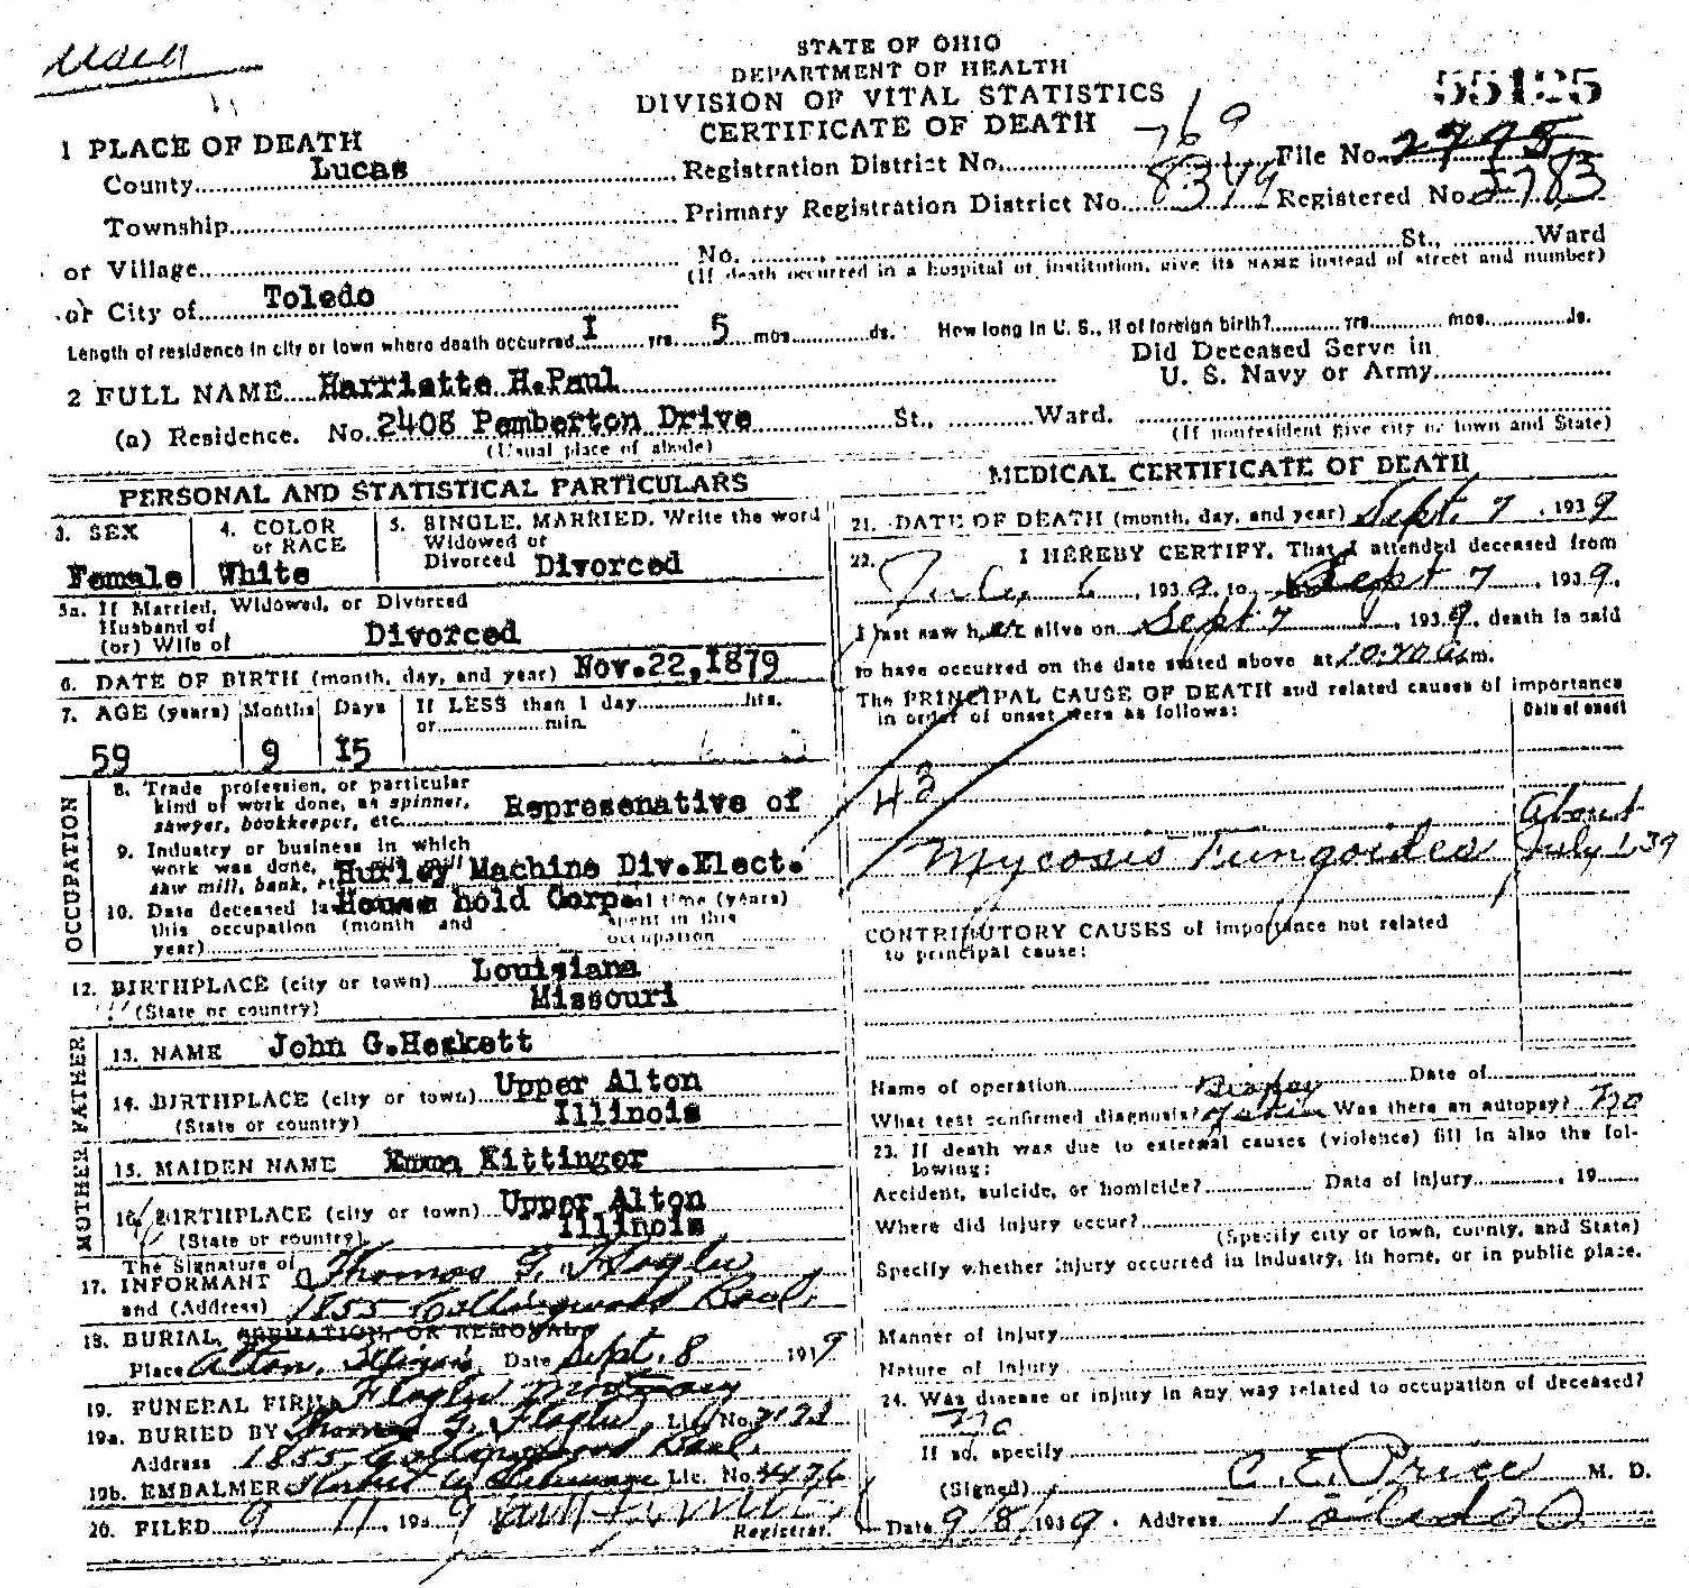 STATE OF OHIO
DEPARTMENT OF HEALTH
DIVISION OF VITAL STATISTICS
CERTIFICATE OF DEATH
55125
1 PLACE OF DEATH
County Lucas Registration District No. 769 File No.
Township Primary Registration District No. 8349 Registered No. 5783
or Village No. St., Ward
(If death occurred in a hospital or institution, give its NAME instead of street and number)
or City of Toledo
Length of residence in city or town where death occurred I yrs. 5 mos. ds. How long in U. S., if of foreign birth? yrs. mos. ds.
Did Deceased Serve in
U. S. Navy or Army
2 FULL NAME Harriette H.Paul
(a) Residence. No. 2408 Pemberton Drive St., Ward.
(Usual place of abode) (If nonresident give city or town and State)
PERSONAL AND STATISTICAL PARTICULARS
3. SEX 4. COLOR or RACE 5. SINGLE, MARRIED, Write the word
Widowed or
Divorced
Female White Divorced
5a. If Married, Widowed, or Divorced
Husband of
(or) Wife of Divorced
6. DATE OF BIRTH (month, day, and year) Nov.22,1879
7. AGE (years) Months Days If LESS than 1 day hrs.
or min.
59 9 I5
OCCUPATION
8. Trade profession, or particular
kind of work done, as spinner,
sawyer, bookkeeper, etc. Represenative of
9. Industry or business in which
work was done,
saw mill, bank, Hurley Machine Div.Elect.
House hold Corp.
10. Date deceased
this occupation (month and
year)
time (years)
spent in this
occupation
12. BIRTHPLACE (city or town) Louisiana
(State or country) Missouri
FATHER
13. NAME John G.Heskett
14. BIRTHPLACE (city or town) Upper Alton
(State or country) Illinois
MOTHER
15. MAIDEN NAME Emma Kittinger
16. BIRTHPLACE (city or town) Upper Alton
(State or country) Illinois
The Signature of
17. INFORMANT Thomas
and (Address) 1855 Collingwood
18. BURIAL, CREMATION, OR REMOVAL
Place Alton, Illinois Date Sept. 8 19
19. FUNERAL FIRM
19a. BURIED BY Thomas Lic. No.
Address 1855 Collingwood
19b. EMBALMER Lic. No. 4176
20. FILED 9 11, 193 9
Registrar.
MEDICAL CERTIFICATE OF DEATH
21. DATE OF DEATH (month, day, and year) Sept. 7, 1939
22. I HEREBY CERTIFY, That I attended deceased from
1939, to Sept 7, 1939.
I last saw her alive on Sept 7, 1939, death is said
to have occurred on the date stated above at m.
The PRINCIPAL CAUSE OF DEATH and related causes of importance
in order of onset were as follows:
Date of onset
43
Mycosis Fungoides About July 1, 39
CONTRIBUTORY CAUSES of importance not related
to principal cause:
Name of operation Date of
What test confirmed diagnosis? Biopsy of skin Was there an autopsy? no
23. If death was due to external causes (violence) fill in also the fol-
lowing:
Accident, suicide, or homicide? Date of injury , 19
Where did injury occur?
(Specify city or town, county, and State)
Specify whether injury occurred in industry, in home, or in public place.
Manner of Injury
Nature of Injury
24. Was disease or injury in any way related to occupation of deceased?
no
If so, specify
(Signed) C. E. Price M. D.
Date 9/8/1939. Address Toledo O